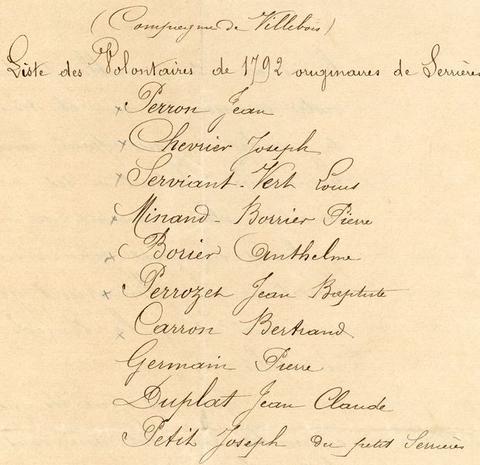 (Compagnie de Villebois)
Liste des Volontaires de 1792 originaires de Serrières
x Perron Jean
x Chevrier Joseph
x Serviant-Vert Louis
x Minand-Borrier Pierre
Borier Anthelme
x Perrozet Jean Baptiste
x Carron Bertrand
Germain Pierre
Duplat Jean Claude
Petit Joseph du petit Serrières